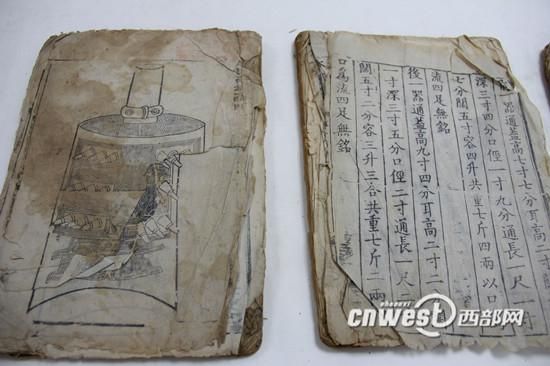 器通蓋高七寸七分耳高二寸
深三寸四分口俓一寸九分通長一尺一
七分闊五寸容四升共重七斤四兩以口
流四足無銘
後 器通蓋高九寸四分耳高二寸
一寸深三寸五分口俓二寸通長一尺
闊五寸二分容三升三合共重七斤二兩
口爲流四足無銘
shaanxi
cnwest西部网